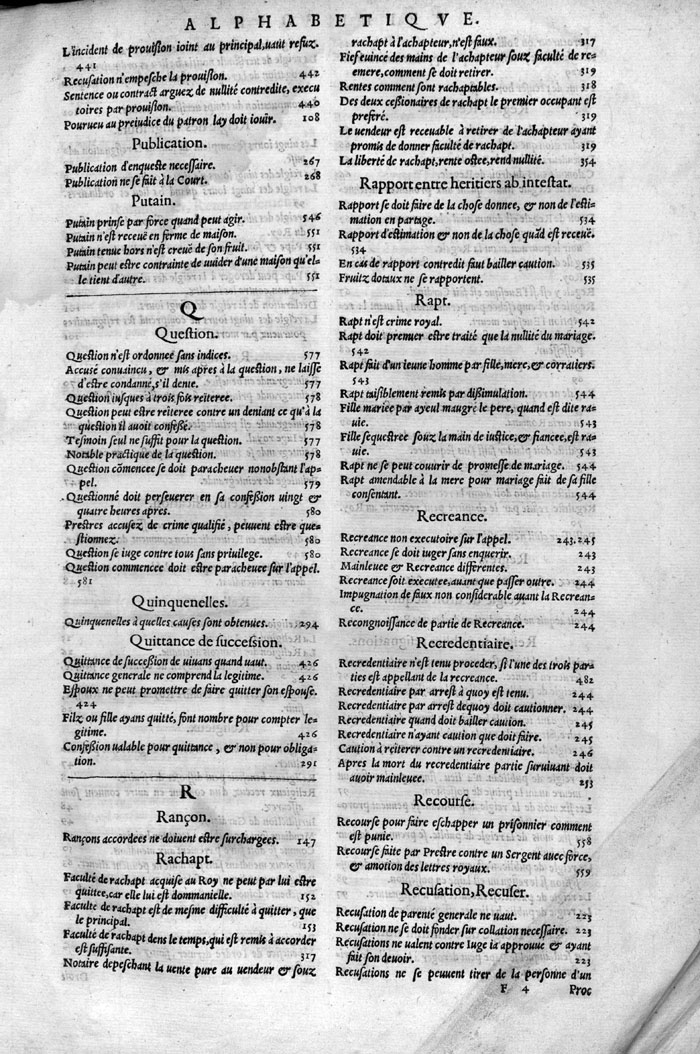 ALPHABETIQVE.
L'incident de prouision ioint au principal,uaut refuz.
441
Recusation n'empesche la prouision. 442
Sentence ou contract arguez de nullité contredite, execu
toires par prouision. 440
Pourueu au preiudice du patron lay doit iouir. 108
Publication.
Publication d'enqueste necessaire. 267
Publication ne se fait à la Court. 268
Putain.
Putain prinse par force quand peut agir. 546
Putain n'est receuë en ferme de maison. 551
Putain tenue hors n'est creuë de son fruit. 551
Putain peut estre contrainte de uuider d'une maison qu'el-
le tient d'autre. 552
Q
Question.
Question n'est ordonnee sans indices. 577
Accusé conuaincu, & mis apres à la question, ne laisse
d'estre condanné,s'il denie. 577
Question iusques à trois fois reiteree. 578
Question peut estre reiteree contre un deniant ce qu'à la
question il auoit confessé. 578
Tesmoin seul ne suffit pour la question. 577
Notable practique de la question. 578
Question cõmencee se doit paracheuer nonobstant l'ap-
pel. 579
Questionné doit perseuerer en sa confession uingt &
quatre heures apres. 580
Prestres accusez de crime qualifié, peuuent estre que-
stionnez. 580
Question se iuge contre tous sans priuilege. 580
Question commencee doit estre paracheuee sur l'appel.
581
Quinquenelles.
Quinquenelles à quelles causes sont obtenues. 294
Quittance de succession.
Quittance de succession de uiuans quand uaut. 426
Quittance generale ne comprend la legitime. 426
Espoux ne peut promettre de faire quitter son espouse.
424
Filz ou fille ayans quitté, font nombre pour compter le-
gitime. 426
Confession ualable pour quittance, & non pour obliga-
tion. 291
R
Rançon.
Rançons accordees ne doiuent estre surchargees. 147
Rachapt.
Faculté de rachapt acquise au Roy ne peut par lui estre
quittee,car elle lui est dommanielle. 152
Faculte de rachapt est de mesme difficulté à quitter, que
le principal. 153
Faculté de rachapt dens le temps,qui est remis à accorder
est suffisante. 317
Notaire depeschant la uente pure au uendeur & souz
rachapt à l'achapteur,n'est faux. 317
Fief euincé des mains de l'achapteur souz faculté de re-
emere,comment se doit retirer. 319
Rentes comment sont rachaptables. 318
Des deux cessionaires de rachapt le premier occupant est
preferé. 319
Le uendeur est receuable à retirer de l'achapteur ayant
promis de donner faculté de rachapt. 319
La liberté de rachapt,rente ostee,rend nullité. 354
Rapport entre heritiers ab intestat.
Rapport se doit faire de la chose donnee, & non de l'esti-
mation en partage. 534
Rapport d'estimation & non de la chose quãd est receuë.
534
En cas de rapport contredit faut bailler caution. 535
Fruitz dotaux ne se rapportent. 535
Rapt.
Rapt n'est crime royal. 542
Rapt doit premier estre traité que la nullité du mariage.
542
Rapt fait d'un ieune homme par fille,mere,& corratiers.
543
Rapt taisiblement remis par dissimulation. 544
Fille mariee par ayeul maugré le pere, quand est dite ra-
uie. 543
Fille sequestree souz la main de iustice,& fiancee,est ra-
uie. 543
Rapt ne se peut couurir de promesse de mariage. 544
Rapt amendable à la mere pour mariage fait de sa fille
consentant. 544
Recreance.
Recreance non executoire sur l'appel. 243.245
Recreance se doit iuger sans enquerir. 243
Mainleuee & Recreance differentes. 243
Recreance soit executee,auant que passer outre. 244
Impugnation de faux non considerable auant la Recrean-
ce. 244
Recongnoissance de partie de Recreance. 244
Recredentiaire.
Recredentiaire n'est tenu proceder, si l'une des trois par-
ties est appellant de la recreance. 482
Recredentiaire par arrest à quoy est tenu. 244
Recredentiaire par arrest dequoy doit cautionner. 244
Recredentiaire quand doit bailler caution. 245
Recredentiaire n'ayant caution que doit faire. 245
Caution à reiterer contre un recredentiaire. 246
Apres la mort du recredentiaire partie suruiuant doit
auoir mainleuee. 253
Recourse.
Recourse pour faire eschapper un prisonnier comment
est punie. 558
Recourse faite par Prestre contre un Sergent auec force,
& amotion des lettres royaux. 559
Recusation, Recuser.
Recusation de parenté generale ne uaut. 223
Recusation ne se doit fonder sur collation necessaire. 223
Recusations ne ualent contre Iuge ia approuué & ayant
fait son deuoir. 223
Recusations ne se peuuent tirer de la personne d'un
F 4 Proc